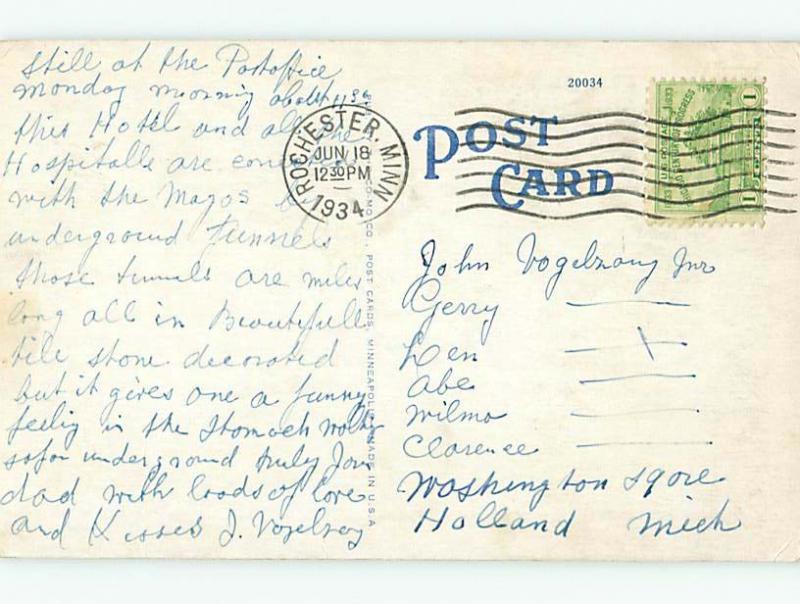 Still at the Postoffice
Monday morning about 11 30
this Hotel and all the
Hospitalls are conected
with the Mayos by
underground Tunnels
those tunnels are miles
long all in Beautyfull
tile stone decorated
but it gives one a funny
feelig in the stomach walkig
sofar underground truly Your
dad with loads of love
and Kisses J. Vogelzang
ROCHESTER, MINN
JUN 18
12 30 PM
1934
20034
POST
CARD
1 1
CO., POST CARDS, MINNEAPOLIS MADE IN U.S.A
John Vogelzang Jnr
Gerry
Len
Abe
Wilma
Clarence
Washington sqore
Holland Mich